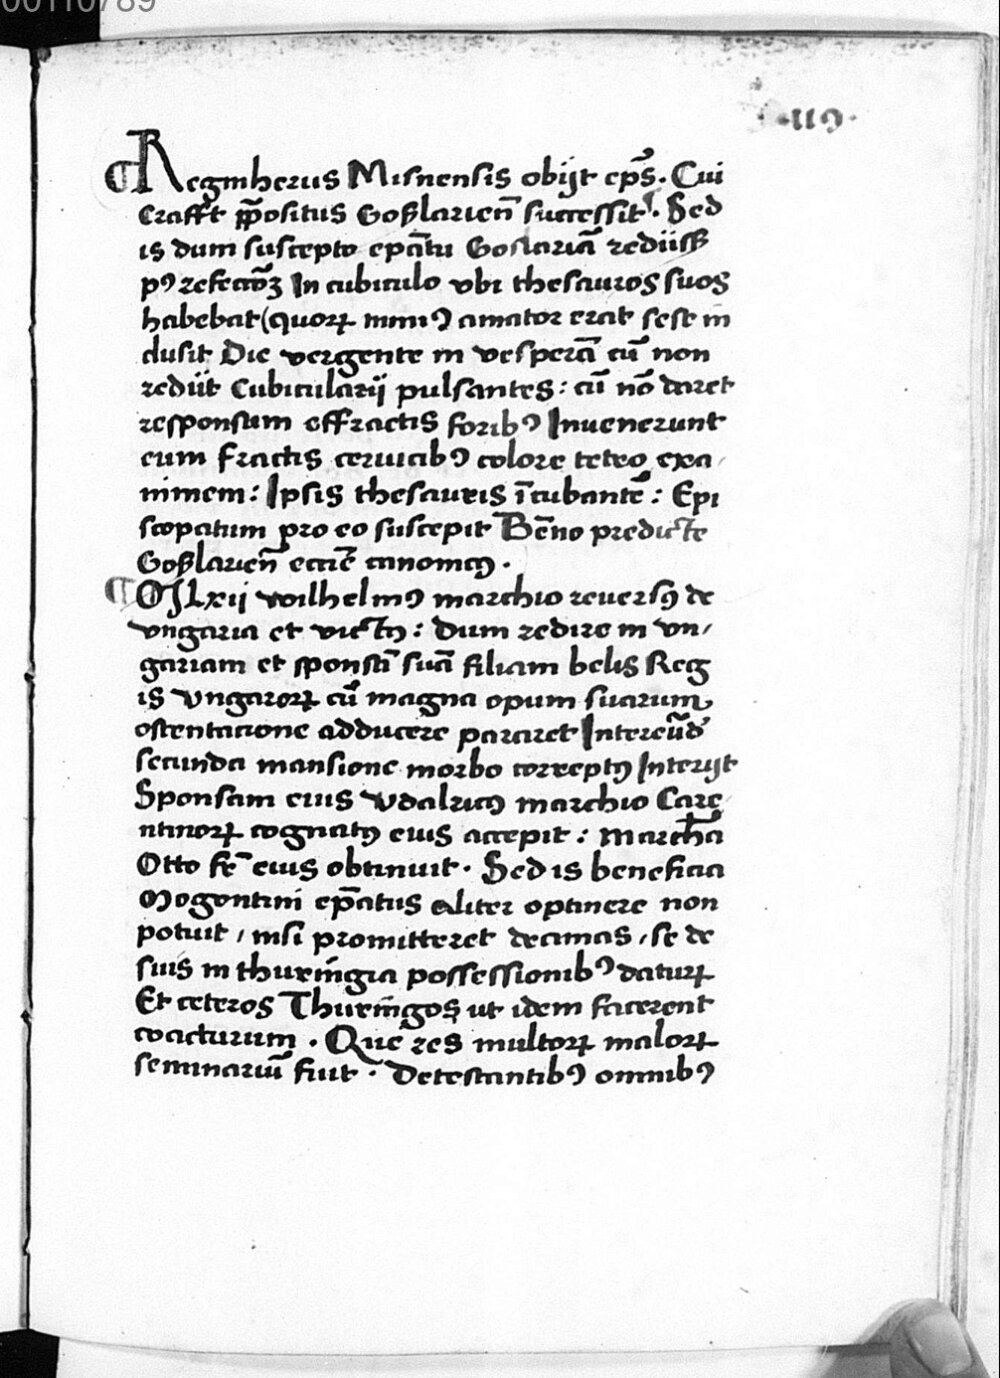 00110789
·119·
¶ Reginherus Misnensis obijt ep̄s. Cui
Crafft p̄positus Goßlarien̄ successit. Sed
is dum suscepto ep̄atu Goslariā rediiss
pꝰ refectōꝫ In cubiculo vbi thesauros suos
habebat (quoꝝ nimiꝰ amator erat sese in
clusit Die vergente in vesperā cū non
rediit Cubicularij pulsantes: cū nō daret
responsum effractis foribꝰ Inuenerunt
eum fractis ceruicibꝰ colore tetro exa
nimem: Ipsis thesauris īcubantē: Epi
scopatum pro eo suscepit Bēno predicte
Goßlarien̄ eccīe canonicꝰ.
¶ MLxii wilhelmꝰ marchio reuersꝰ de
vngaria et victꝰ: Dum redire in vn/
gariam et sponsā suā filiam belis Reg
is vngaroꝝ cū magna opum suarum
ostentacione adducere pararet Intereūd
secunda mansione morbo correptꝰ Interijt
Sponsam eius vdalricꝰ marchio Care
ntinoꝝ cognatꝰ eius accepit: marchā
Otto fr̄ eius obtinuit. Sed is beneficia
Mogontini ep̄atus aliter optinere non
potuit, nisi promitteret decimas, se de
suis in thurīngia possessionibꝰ datuꝝ
Et ceteros Thurīngos ut idem facerent
coacturum. Que res multoꝝ maloꝝ
seminariū fuit. Detestantibꝰ omnibꝰ